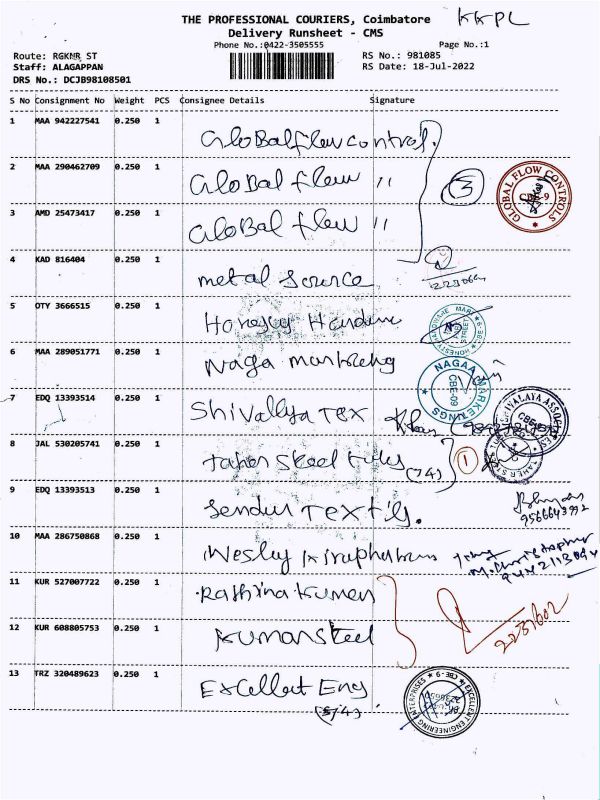 THE PROFESSIONAL COURIERS, Coimbatore KKPL
Delivery Runsheet - CMS
Phone No.:0422-3505555 Page No.:1
Route: RGKNR ST RS No.: 981085
Staff: ALAGAPPAN RS Date: 18-Jul-2022
DRS No.: DCJB98108501
S No Consignment No Weight PCS Consignee Details Signature
1 MAA 942227541 0.250 1 Global flow control.
2 MAA 290462709 0.250 1 Global flow " 3
GLOBAL FLOW CONTROLS CBE-9
3 AMD 25473417 0.250 1 Global flow "
4 KAD 816404 0.250 1 metal source
5 OTY 3666515 0.250 1 Honesty
6 MAA 289051771 0.250 1 Naga marketing
NAGAA MARKETINGS CBE-09
7 EDQ 13393514 0.250 1 Shivallya Tex
8 JAL 530205741 0.250 1 taher steel (74) 1
9 EDQ 13393513 0.250 1 Sendur Textils.
9566643992
10 MAA 286750868 0.250 1 Wesley
M. Christopher
11 KUR 527007722 0.250 1 Rathna kumar
2231602
12 KUR 608805753 0.250 1 Kumar steel
13 TRZ 320489623 0.250 1 Excellent Eng
EXCELLENT ENGINEERING ENTERPRISES CBE-9